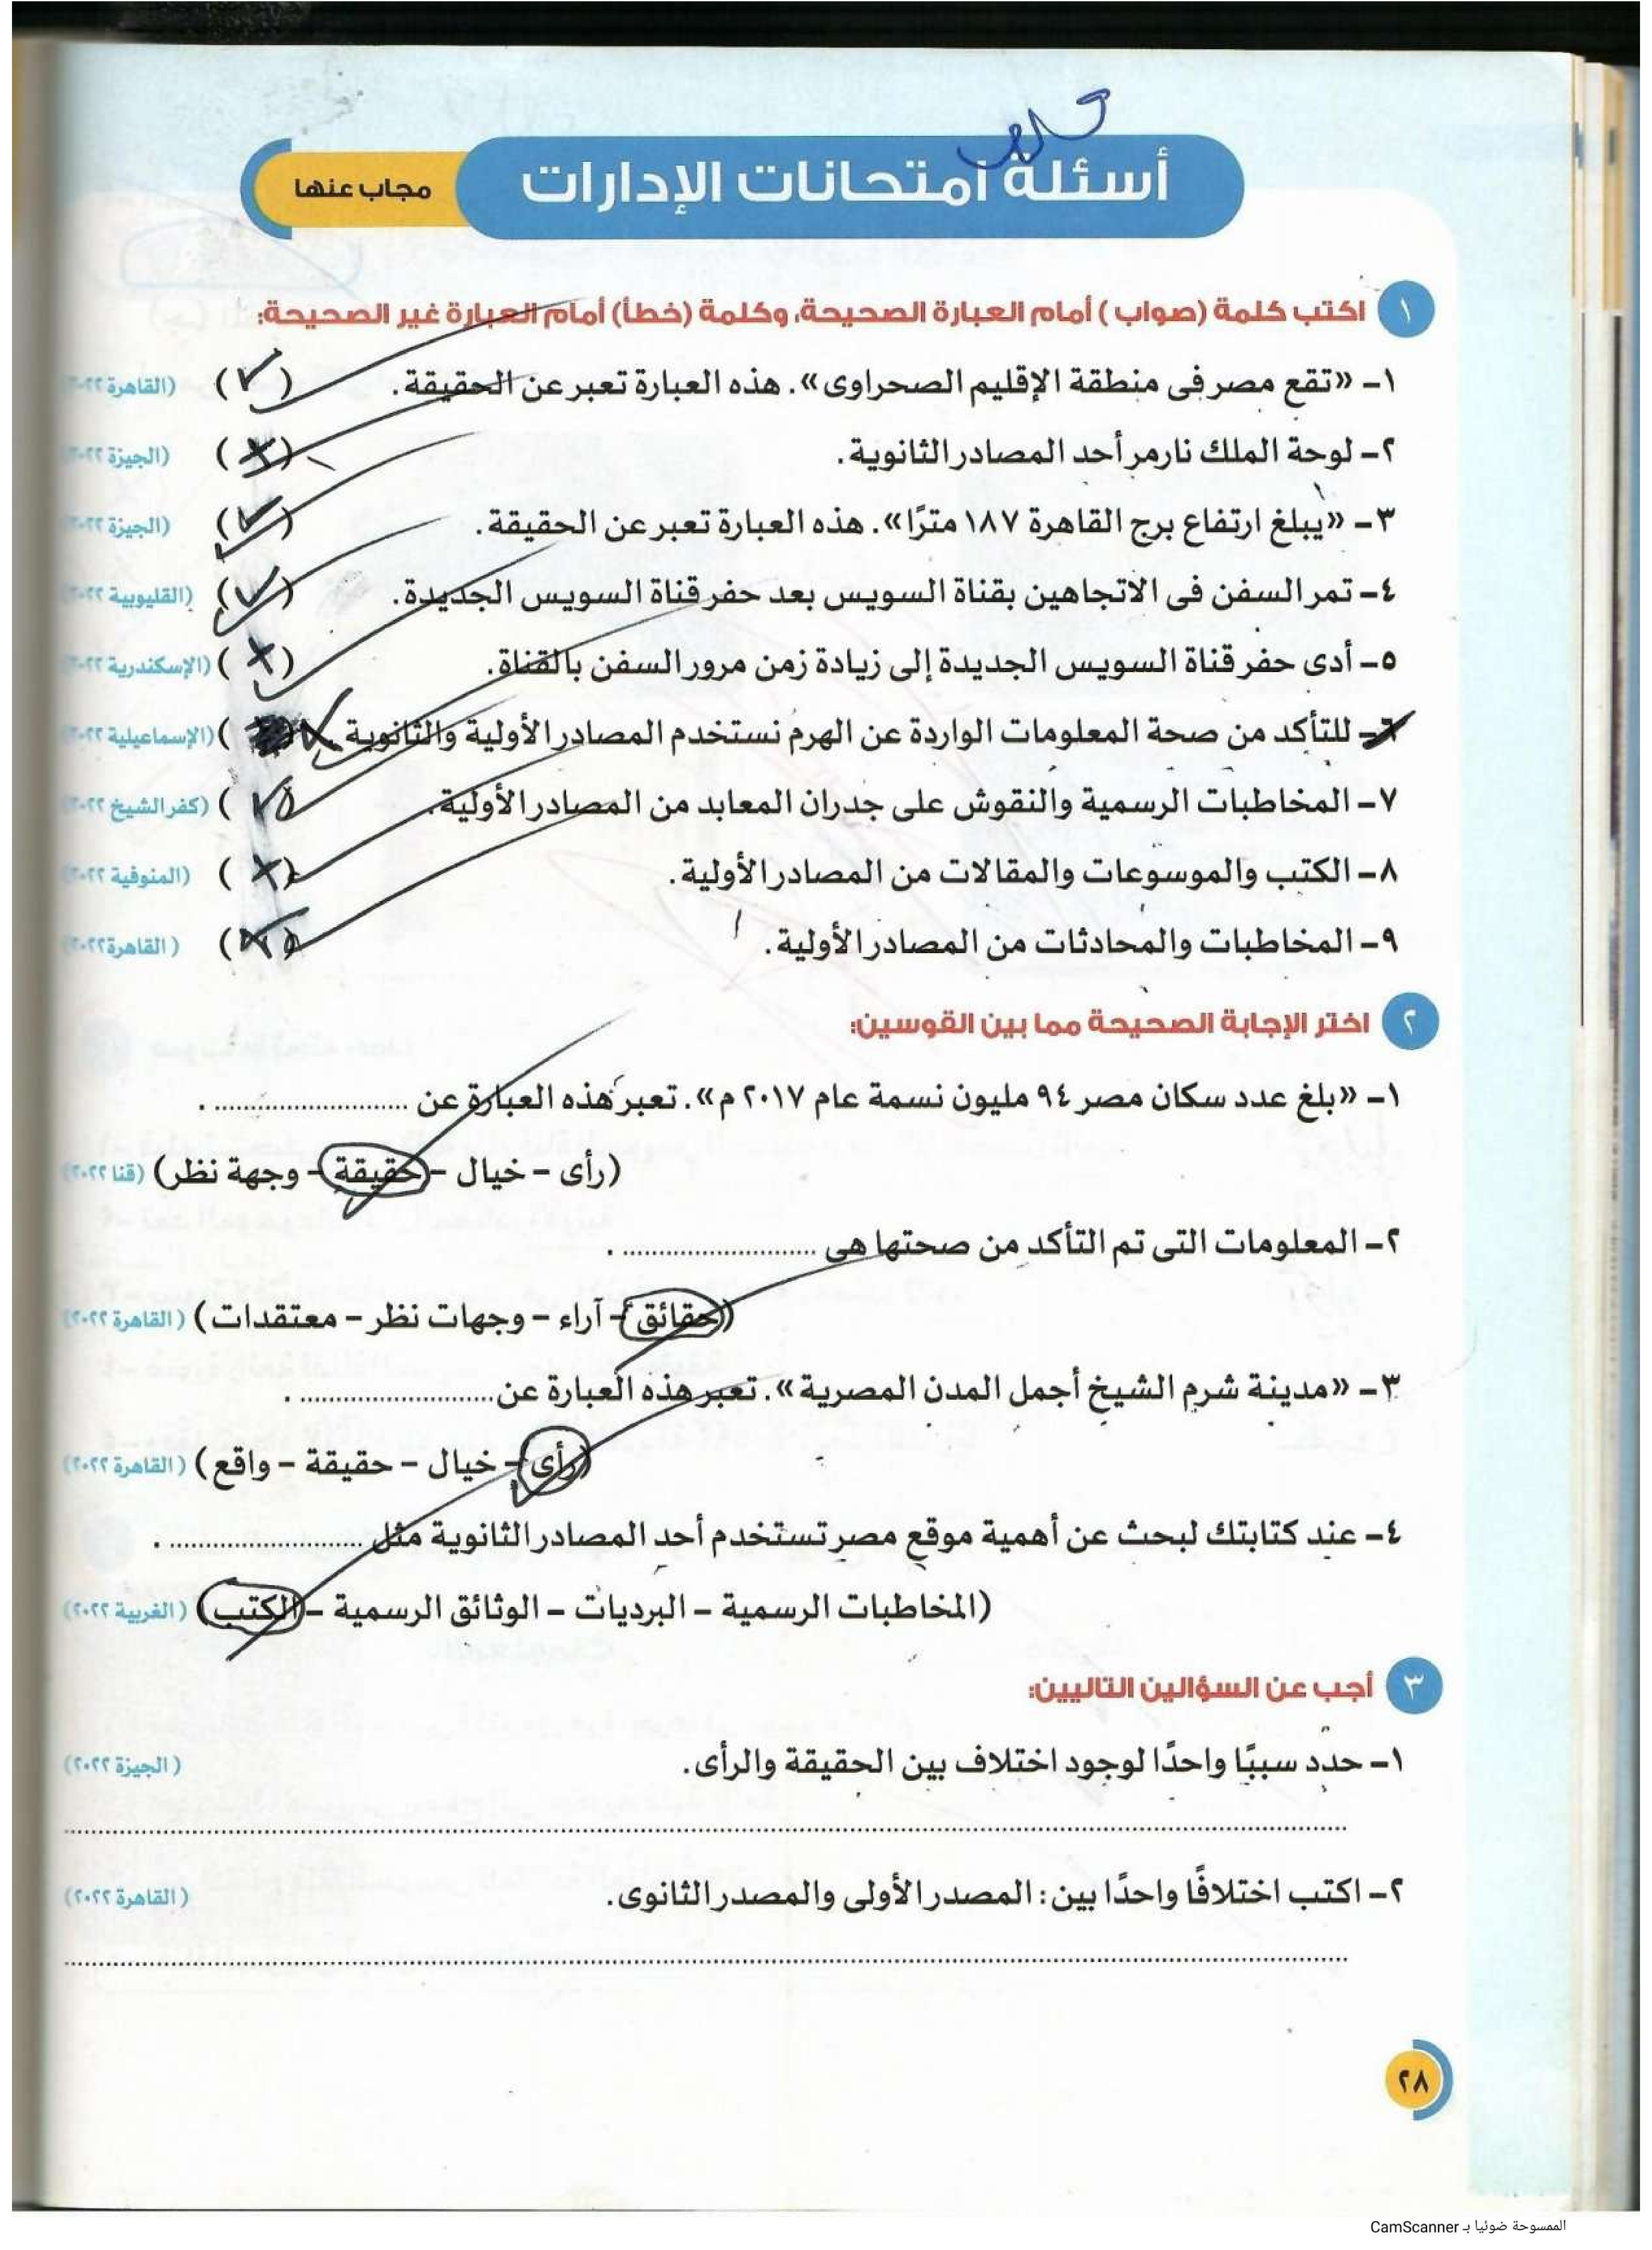 أسئلة امتحانات الإدارات
مجاب عنها
١ اكتب كلمة (صواب) أمام العبارة الصحيحة، وكلمة (خطأ) أمام العبارة غير الصحيحة:
١- «تقع مصر فى منطقة الإقليم الصحراوى». هذه العبارة تعبر عن الحقيقة. (✓) (القاهرة ٢٠٢٢)
٢- لوحة الملك نارمر أحد المصادر الثانوية. (✗) (الجيزة ٢٠٢٢)
٣- «يبلغ ارتفاع برج القاهرة ١٨٧ مترًا». هذه العبارة تعبر عن الحقيقة. (✓) (الجيزة ٢٠٢٢)
٤- تمر السفن فى الاتجاهين بقناة السويس بعد حفر قناة السويس الجديدة. (✓) (القليوبية ٢٠٢٢)
٥- أدى حفر قناة السويس الجديدة إلى زيادة زمن مرور السفن بالقناة. (✗) (الإسكندرية ٢٠٢٢)
٦- للتأكد من صحة المعلومات الواردة عن الهرم نستخدم المصادر الأولية والثانوية. ( ) (الإسماعيلية ٢٠٢٢)
٧- المخاطبات الرسمية والنقوش على جدران المعابد من المصادر الأولية. (✓) (كفر الشيخ ٢٠٢٢)
٨- الكتب والموسوعات والمقالات من المصادر الأولية. (✗) (المنوفية ٢٠٢٢)
٩- المخاطبات والمحادثات من المصادر الأولية. ( ) (القاهرة ٢٠٢٢)
٢ اختر الإجابة الصحيحة مما بين القوسين:
١- «بلغ عدد سكان مصر ٩٤ مليون نسمة عام ٢٠١٧ م». تعبر هذه العبارة عن .......................... .
(رأى – خيال – حقيقة – وجهة نظر) (قنا ٢٠٢٢)
٢- المعلومات التى تم التأكد من صحتها هى .......................... .
(حقائق – آراء – وجهات نظر – معتقدات) (القاهرة ٢٠٢٢)
٣- «مدينة شرم الشيخ أجمل المدن المصرية». تعبر هذه العبارة عن .......................... .
(رأى – خيال – حقيقة – واقع) (القاهرة ٢٠٢٢)
٤- عند كتابتك لبحث عن أهمية موقع مصر تستخدم أحد المصادر الثانوية مثل .......................... .
(المخاطبات الرسمية – البرديات – الوثائق الرسمية – الكتب) (الغربية ٢٠٢٢)
٣ أجب عن السؤالين التاليين:
١- حدد سببًا واحدًا لوجود اختلاف بين الحقيقة والرأى. (الجيزة ٢٠٢٢)
٢- اكتب اختلافًا واحدًا بين: المصدر الأولى والمصدر الثانوى. (القاهرة ٢٠٢٢)
٢٨
الممسوحة ضوئيا بـ CamScanner